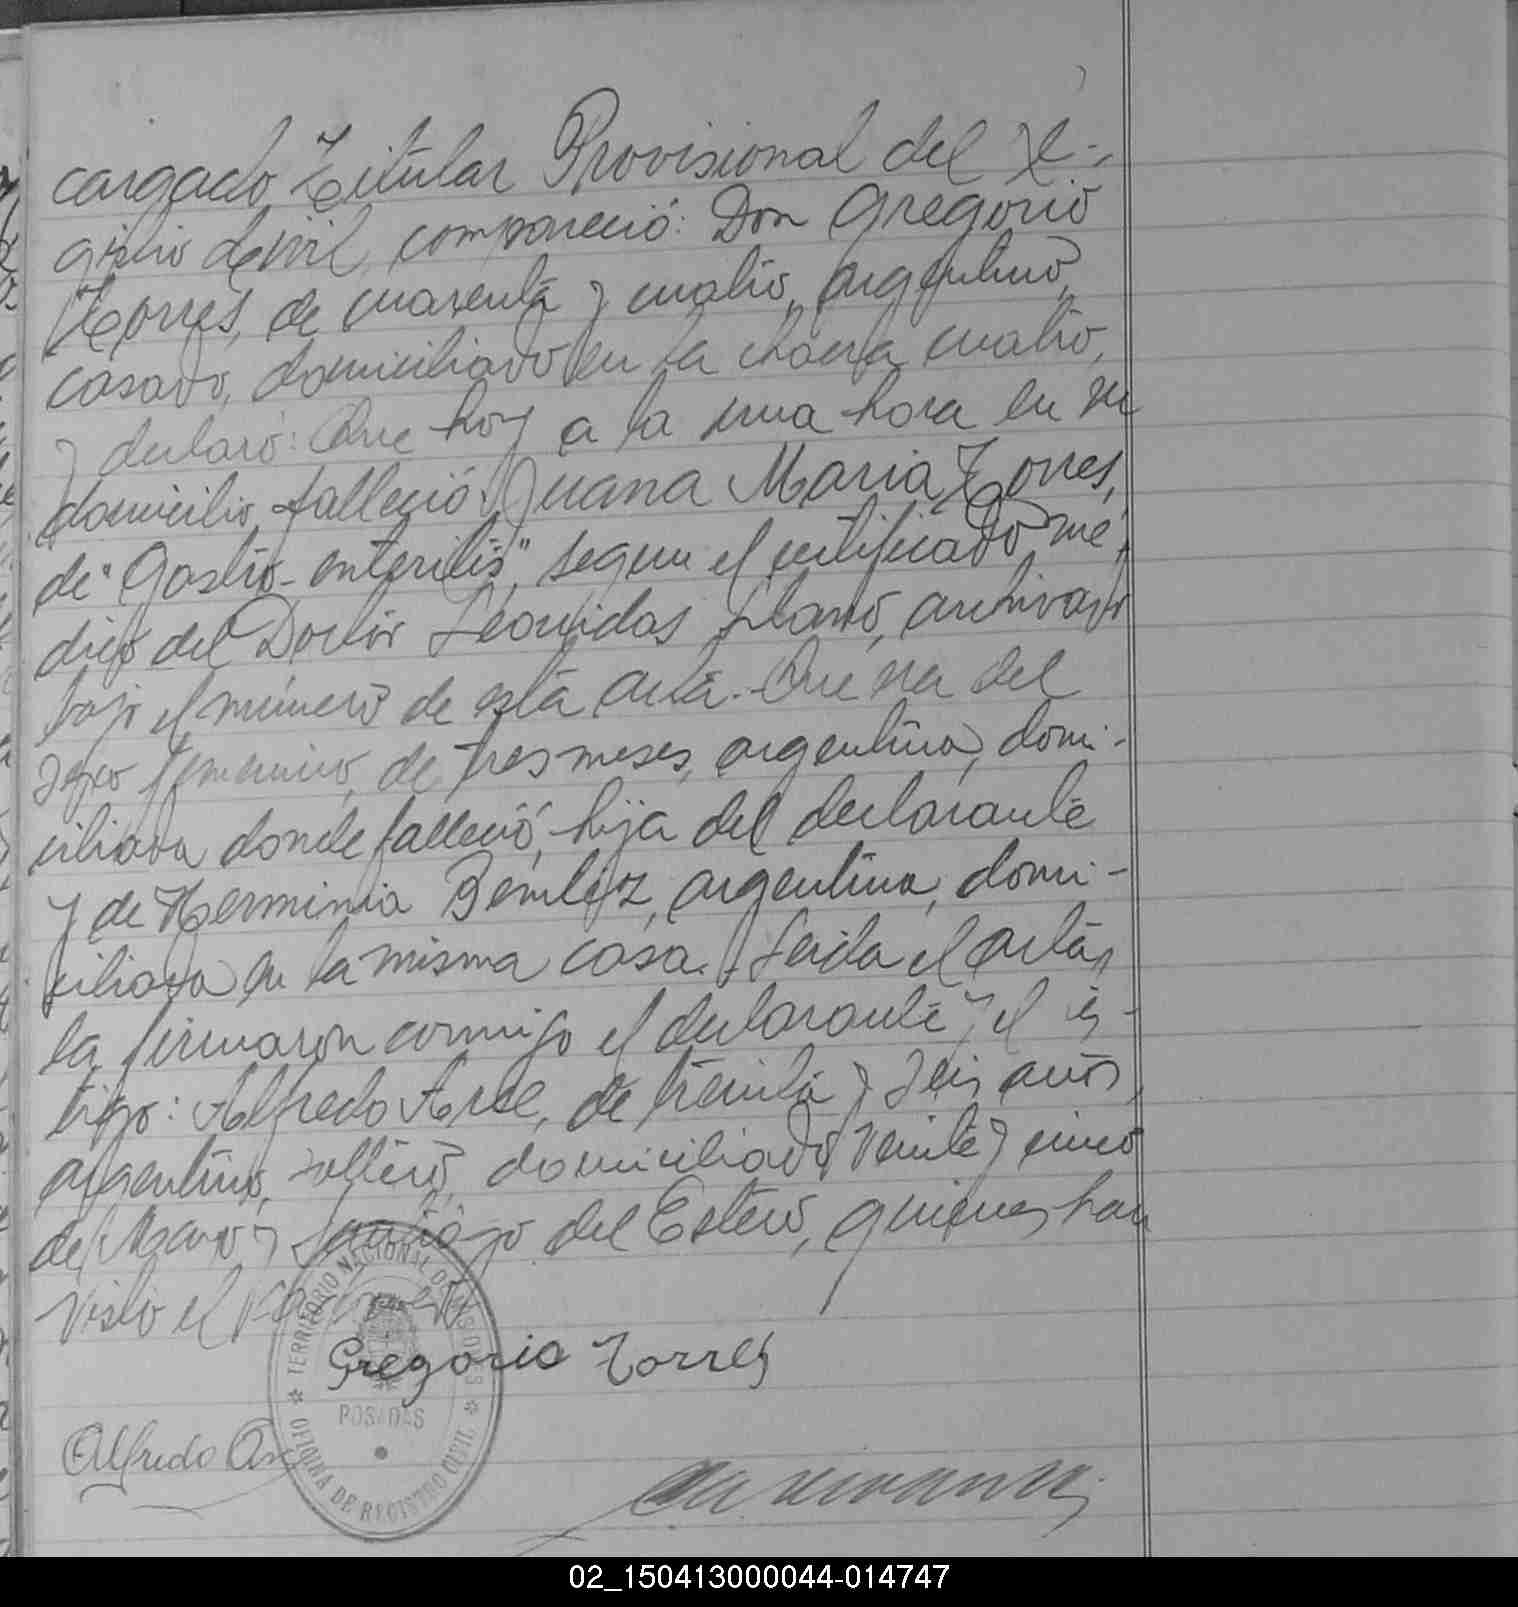 cargado Titular Provisional del Re-
gistro Civil, compareció: Don Gregorio
Torres, de cuarenta y cuatro, argentino,
casado, domiciliado en la chacra cuatro,
y declaró: Que hoy a la una hora en su
domicilio, falleció Juana Maria Torres,
de "Gastro-enteritis", segun el certificado mé-
dico del Doctor Leonidas archivado
bajo el número de esta acta.- Que era del
sexo femenino, de tres meses, argentina, domi-
ciliada donde falleció, hija del declarante
y de Herminia Benitez, argentina, domi-
ciliada en la misma casa. Leida el acta,
la firmaron conmigo el declarante y el tes-
tigo: Alfredo Arce, de treinta y seis años,
argentino, soltero, domiciliado veinte y cinco
de Mayo y Santiago del Estero, quienes han
visto el
Gregorio Torres
Alfredo
TERRITORIO NACIONAL DE MISIONES
POSADAS
OFICINA DE REGISTRO CIVIL
02_150413000044-014747